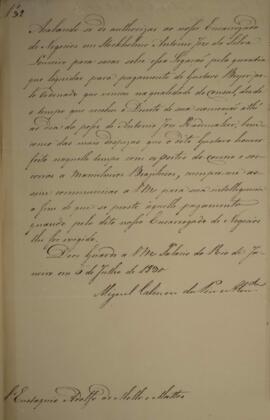 Acabando-se de authorizar ao nosso Encarregado
de Negocios em Stockholmo Antonio José da Silva
Loureiro para sacar sobre essa Legação pela quantia
que liquidar para pagamento de Gustavo Beyer, pe-
lo Ordenado que venceu na qualidade de Consul, desde
o tempo que recebeu o Decreto de sua nomeação até
ao dia da posse de Antonio José Rademaker, bem
como das mais despezas que o dito Gustavo houver
feito naquelle tempo com os portes do correio e soc-
corros a Marinheiros Brazileiros, cumpre-me as-
sim communicar a VMce para sua intelligencia
a fim de que se preste áquelle pagamento
quando pelo dito nosso Encarregado de Negocios
lhe for exigido.
Deos Guarde a VMce Palacio do Rio de Ja-
neiro em 5 de Julho de 1830
Miguel Calmon du Pin e Almda
Eustaquio Adolfo de Mello e Mattos